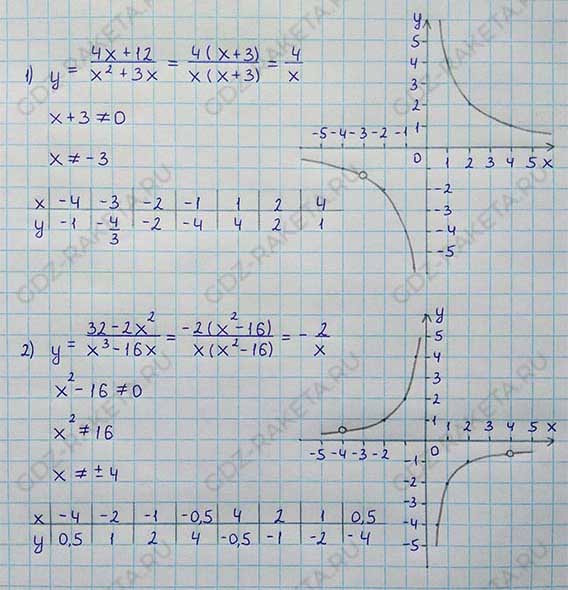 1) y = (4x+12)/(x²+3x) = 4(x+3)/(x(x+3)) = 4/x
x+3≠0
x≠-3
x -4 -3 -2 -1 1 2 4
y -1 -4/3 -2 -4 4 2 1
y
5
4
3
2
1
-5 -4 -3 -2 -1 0 1 2 3 4 5 x
-2
-3
-4
-5
2) y = (32-2x²)/(x³-16x) = -2(x²-16)/(x(x²-16)) = -2/x
x²-16≠0
x²≠16
x≠±4
x -4 -2 -1 -0,5 4 2 1 0,5
y 0,5 1 2 4 -0,5 -1 -2 -4
y
5
4
3
2
1
1 2 3 4 5 x
-5 -4 -3 -2 0
-1
-2
-3
-4
-5
GDZ-RAKETA.RU
GDZ-RAKETA.RU
GDZ-RAKETA.RU
GDZ-RAKETA.RU
GDZ-RAKETA.RU
GDZ-RAKETA.RU